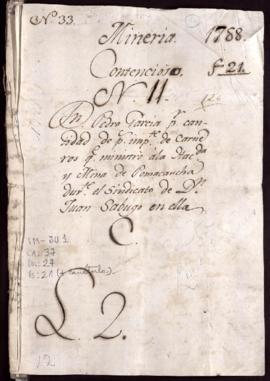 Nº 33.
Mineria. 1788.
Contencioso. f 21
N. 11
Dn. Pedro Garcia pr. can
tidad de ps. impte. de carne
ros qe. ministró á la Hacda.
y Mina de Pomacancha
durte. el Sindicato de Dn.
Juan Sabugo en ella
C.
CA: 37
DO: 27
L. 2.